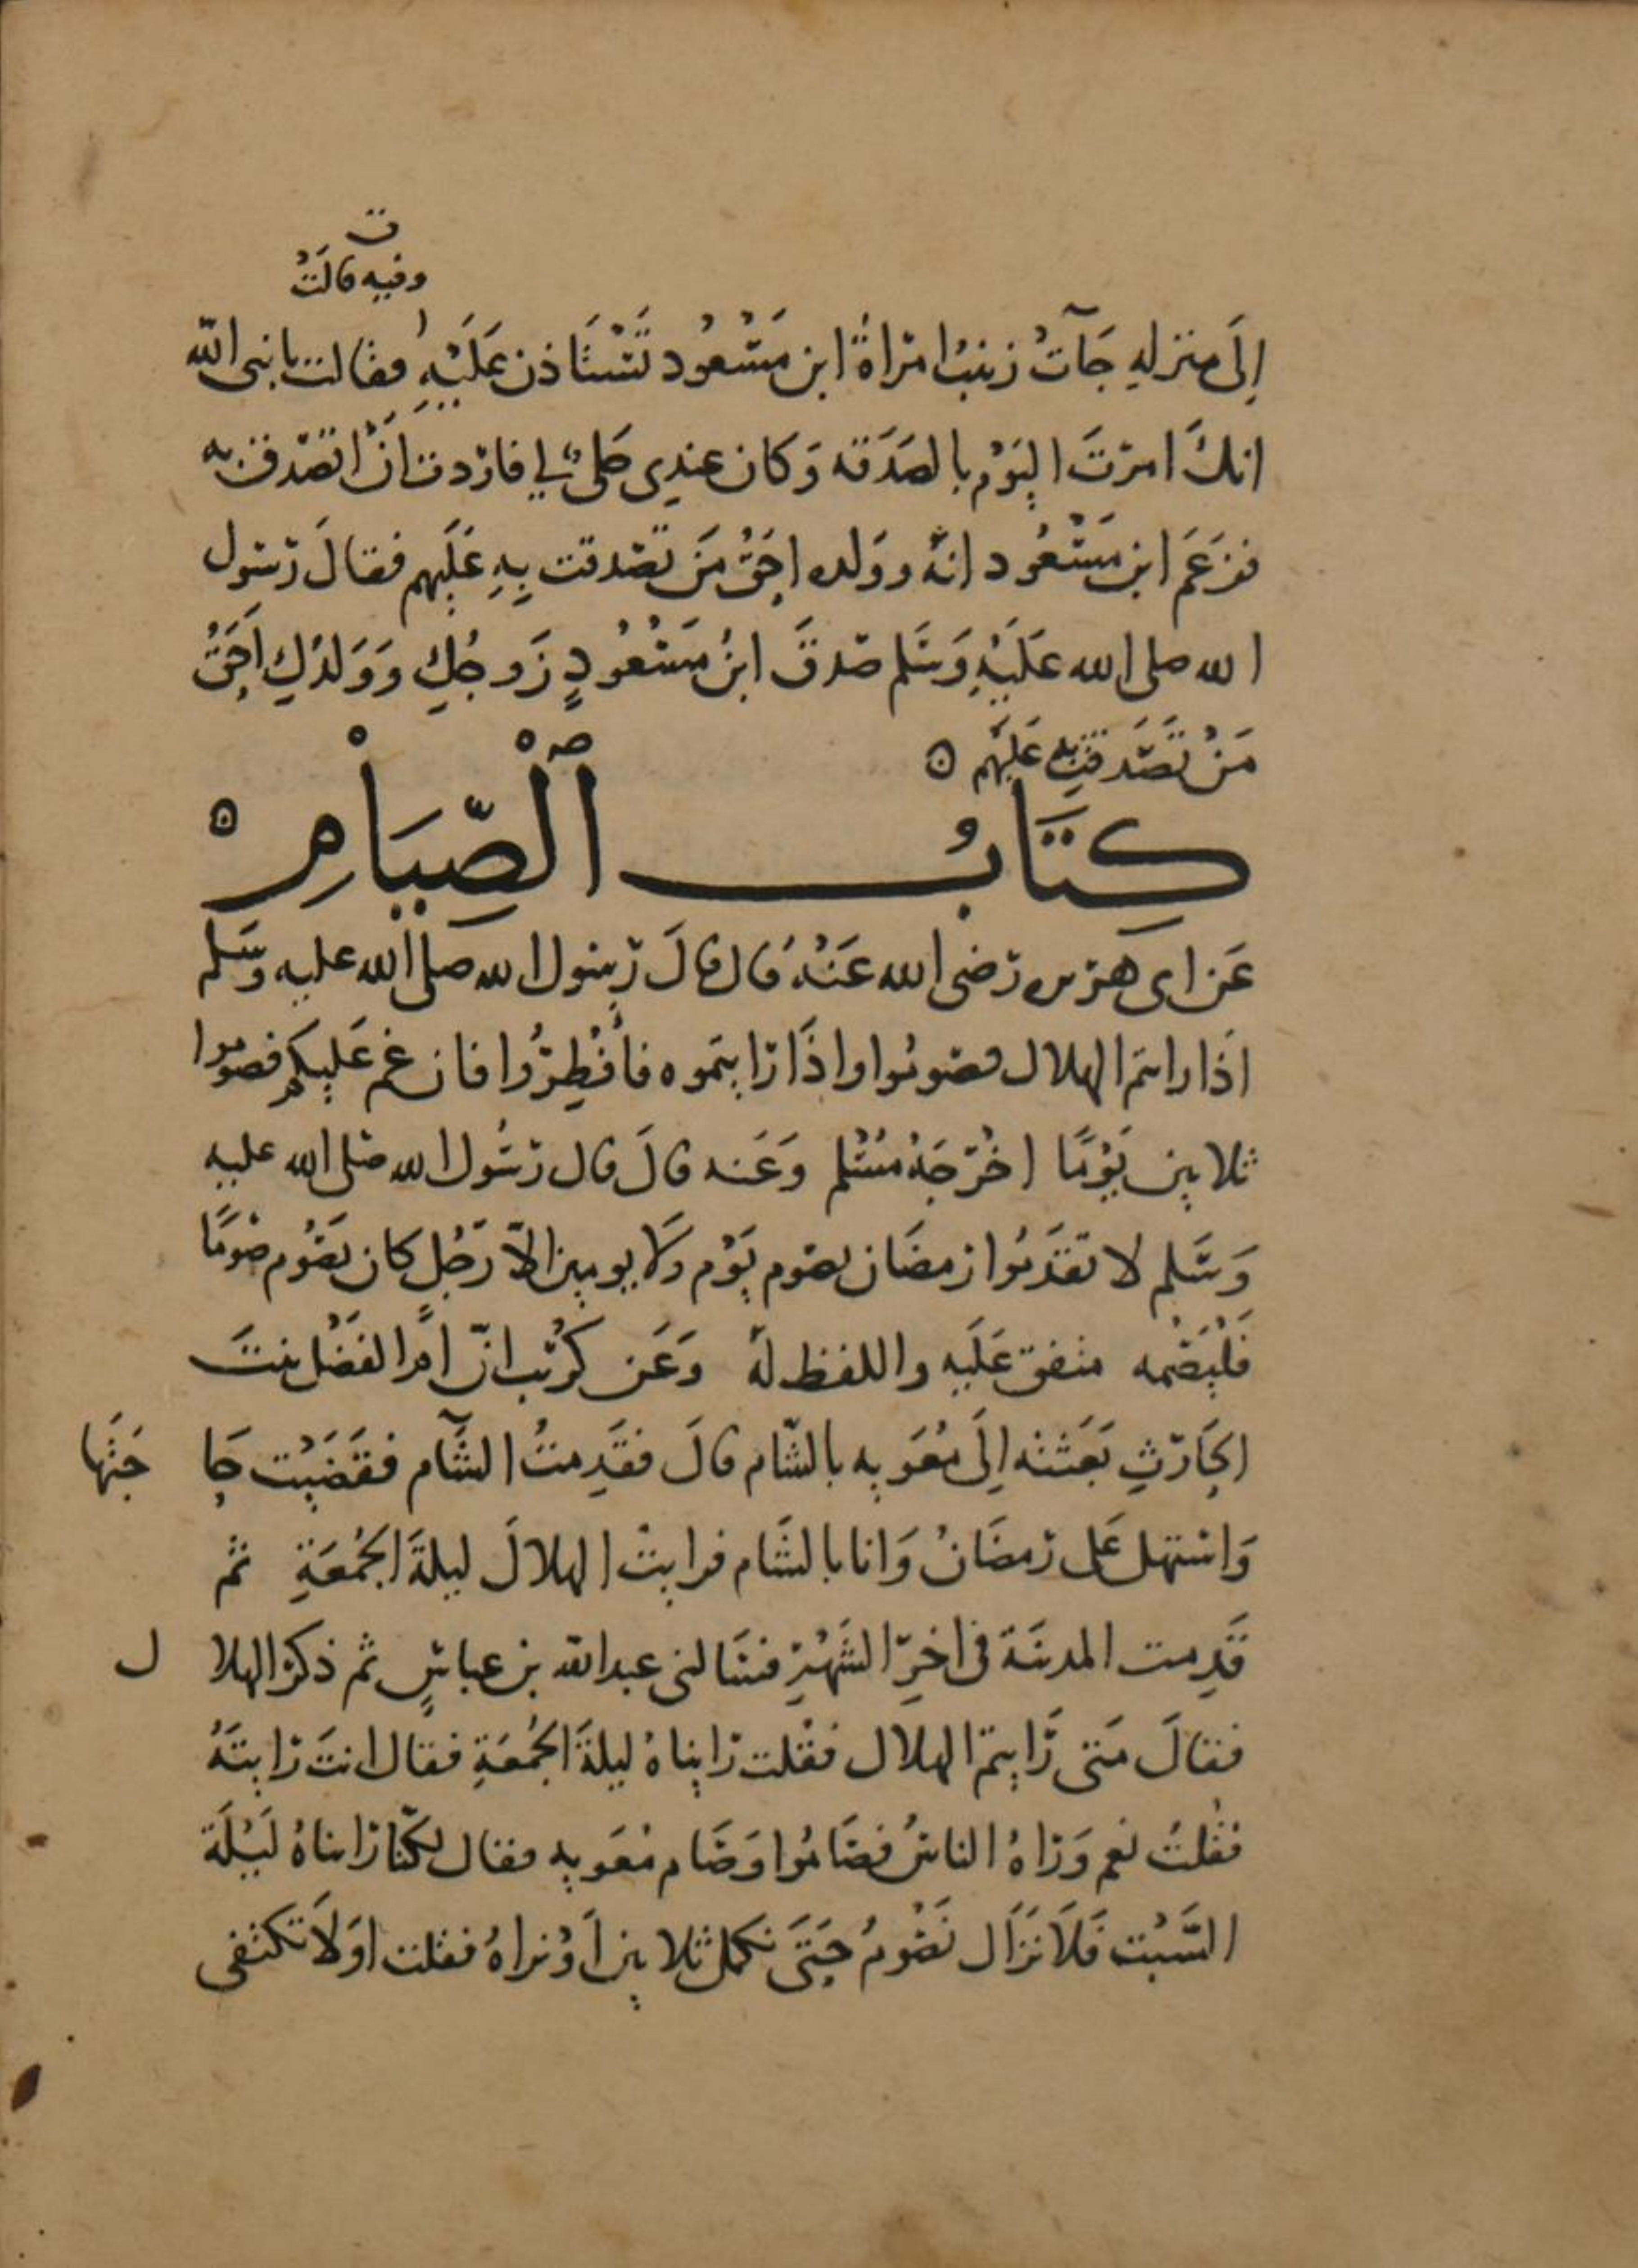 ت
وفيه قالَتْ
إلَى منزلهِ جَآتْ زينبُ امرَاةُ ابن مَسْعُود تَسْتَاذن عَلَيْهِ فقالت يا نبى الله
انكَ امرتَ اليَوْم بالصَدَقه وَكان عندِى حَلىٌ لي فاردت اَنْ اتصَدق به
فزَعَم ابن مَسْعُود انهُ ووَلده احَقُّ مَن تصَدقت بِهِ عَلَيهم فقالَ رسَول
الله صلى الله عَلَيْهِ وَسَلم صَدقَ ابنُ مَسْعُودٍ زَوجُكِ وَوَلدُكِ اَحَقُّ
مَنْ تَصَدقتِ به عَلَيهم ٥
كِتَابُ اَلْصِّيَاْمِ ٥
عَن ابى هريره رَضى الله عَنْهُ قال قالَ رَسُول الله صلى الله عليه وسَلم
اذَا رايتم الهلال فصَومُوا واذَا رَايتمَوه فأَفْطِرُوا فان غم عَليكم فصوموا
ثلاثين يَوْمًا اخْرَجَهُ مُسْلم وَعَنه قالَ قال رَسُول الله صَلى الله عليه
وَسَلم لا تقدَمُوا رمضَان بصَوم يَوْم وَلَا يومين الاّ رَجُلٍ كان يصَوُم صَومًا
فَلْيَصُمه متفق عَلَيه واللفظ لهُ وَعَن كُرَيْب انّ امَّ الفَضْل بنتَ
الحَارثِ بَعَثته إلَى مُعَويه بالشّام قالَ فقَدِمتُ الشَّآم فقَضَيْت حَا جَتَها
وَاستهل عَلى رَمضَانُ وَانا بالشَام فرايتُ الهلالَ ليلةَ الجُمُعَةِ ثم
قَدِمت المدينَة فى اخرِ الشَهْرِ فسَالنى عبد الله بن عباسٍ ثم ذكر الهلا ل
فقالَ مَتى رَايتمَ الهلال فقُلت رَايناهُ ليلةَ الجُمُعَةِ فقال انتَ رَايتَهُ
فقُلتُ نعم وَرَاهُ الناسُ فصَامُوا وَصَام مُعَويه فقال لكنّا رَايناهُ لَيْلَة
السَّبْت فَلَا نَزَال نَصُومُ حَتَى نكمل ثلاثين اَوْ نراهُ فقلت اوَلَا تكتفى